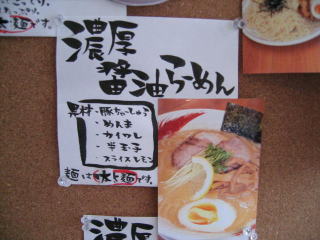 太麺です。
濃厚
醤油らーめん
具材・豚ちゃーしゅう
・めんま
・カイワレ
・半玉子
・スライスレモン
麺は太麺です。
濃厚